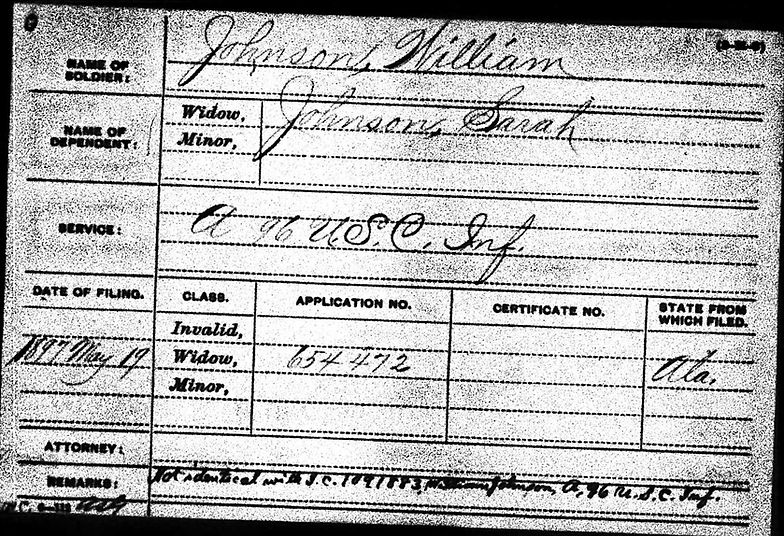 (3-III-6)
NAME OF SOLDIER: Johnson, William
NAME OF DEPENDENT: Widow, Johnson, Sarah
Minor,
SERVICE: A 96 U.S.C. Inf.
DATE OF FILING. CLASS. APPLICATION NO. CERTIFICATE NO. STATE FROM WHICH FILED.
Invalid,
1897 May 19 Widow, 654 472 Ala.
Minor,
ATTORNEY:
REMARKS: Not identical with I.C. 1091883, William Johnson, A, 96 U.S.C. Inf.